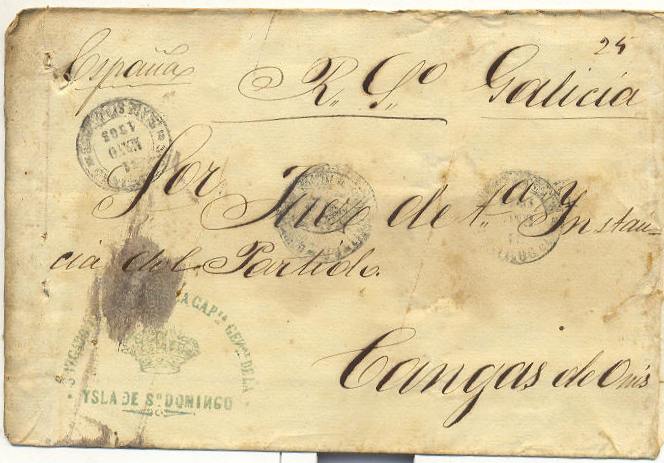 25
España R. S.º Galicia
Sor. Juez de 1.ª Instan-
cia del Partido.
Cangas de Onis
MAYO
CAPn GENal DE LA
YSLA DE Sto DOMINGO